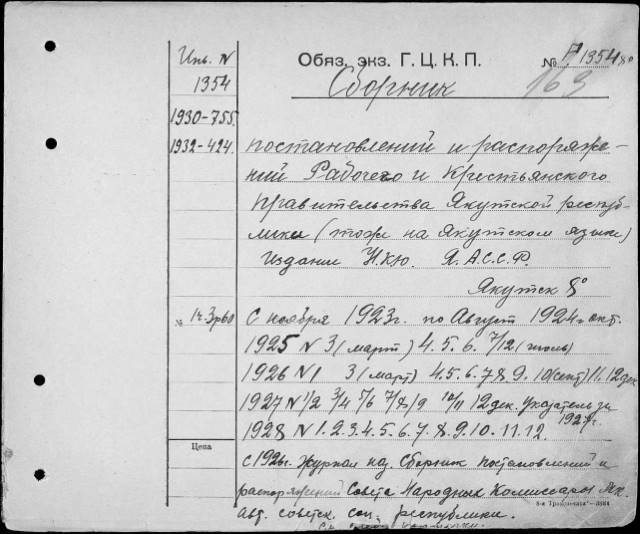 Инв. N
1354
1930-755
1932-424.
Обяз. экз. Г. Ц. К. П.
№ 1354 8°
163
Сборник
постановлений и распоряже-
ний Рабочего и Крестьянского
Правительства Якутской респуб-
лики (тоже на Якутском языке)
Издание Н.К.Ю. Я.А.С.С.Р.
Якутск 8°
№
С ноября 1923г. по Август 1924г. окт.
1925 N 3 (март) 4. 5. 6. 7/12 (июль)
1926 N 1 3 (март) 4.5.6.7.8.9. 10 (сент) 11. 12 дек
1927 N 1/2 3/4 5/6 7/8/9 10/11 12 дек. Указатель за
1927г.
1928 N 1. 2. 3. 4. 5. 6. 7. 8. 9. 10. 11. 12.
Цена
С 1926г. журнал наз. Сборник постановлений и
распоряжений Совета Народных Комиссаров Як.
авт. советск. соц. республики.